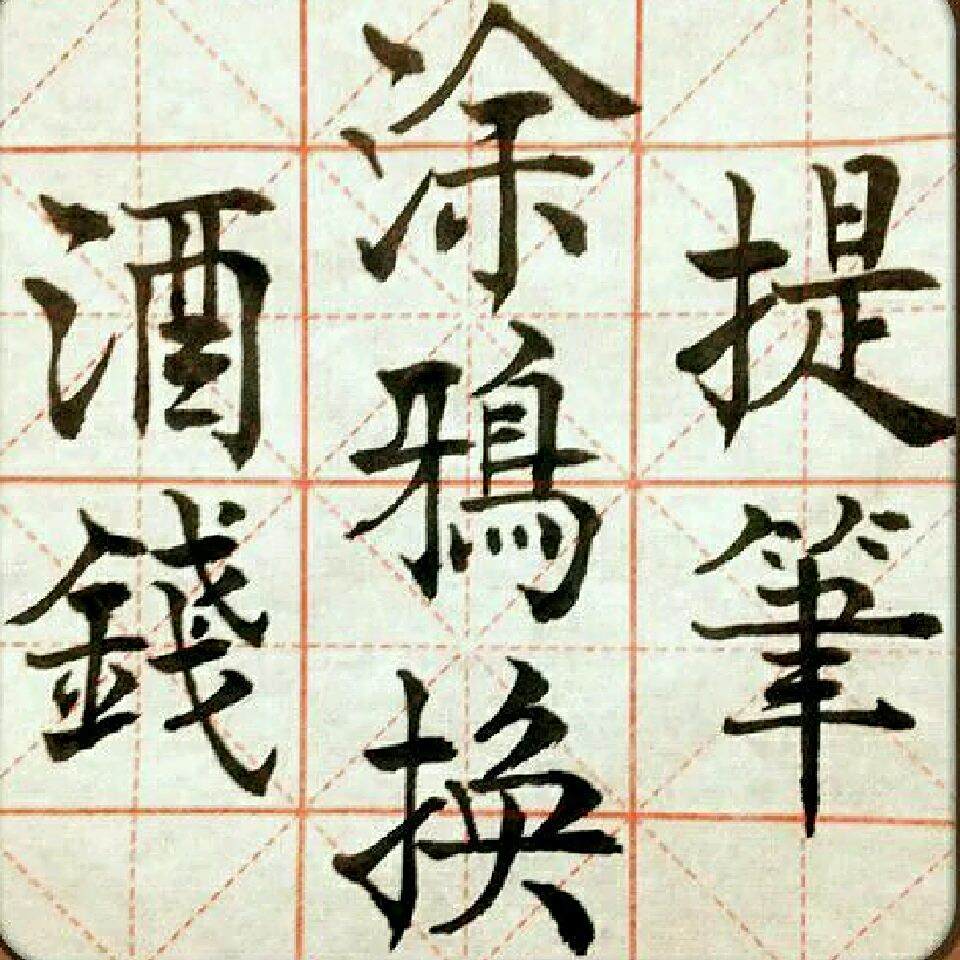 提筆
涂鴉換
酒錢